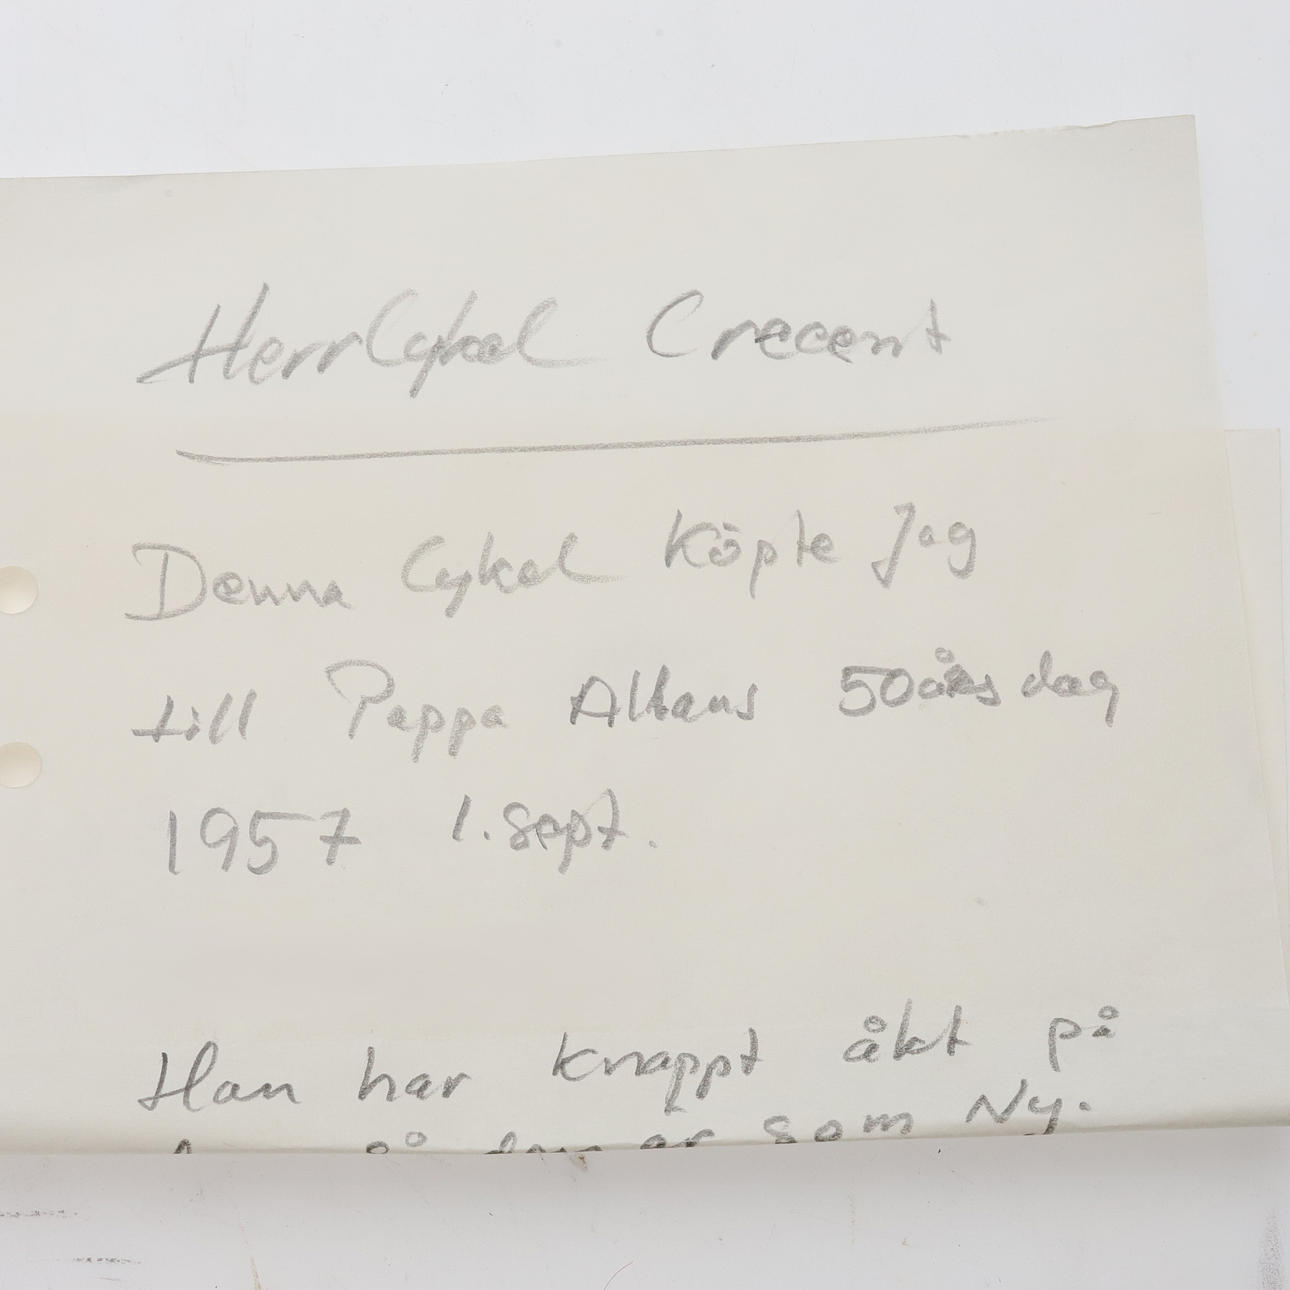 HerrCykel Crecent
Denna Cykel Köpte Jag
till Pappa Allans 50års dag
1957 1. Sept.
Han har knappt åkt på
så den är som Ny.